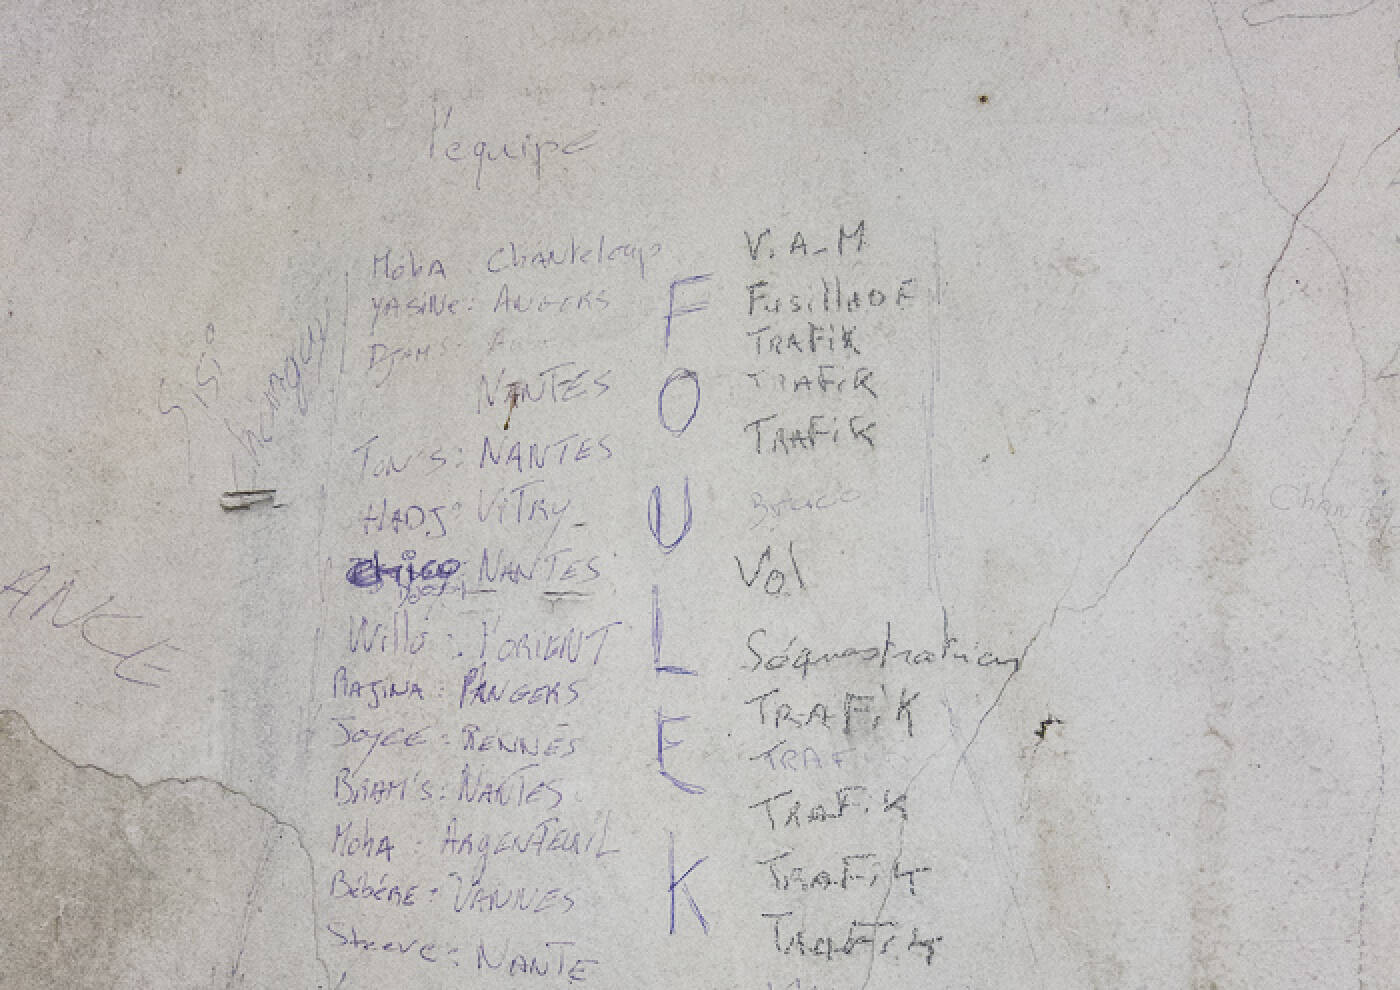 l'equipe
Moha : Chanteloup
YASINE : ANGERS
DJAMS :
NANTES
TON'S : NANTES
HADJ : VITRY
CHICO : NANTES
Willo : l'ORIENT
RAJINA : ANGERS
Joyce : RENNES
BRAM'S : NANTES
Moha : ARGENTEUIL
Bébére : VANNES
Steeve : NANTE
F
O
U
L
E
K
V.A.M
FusillADE
TRAFiK
TRAFiK
TRAFiK
Vol
Séquestration
TRAFiK
TRAF
TRAFiK
TRAFiK
TRAFiK
Sisi
ANCE